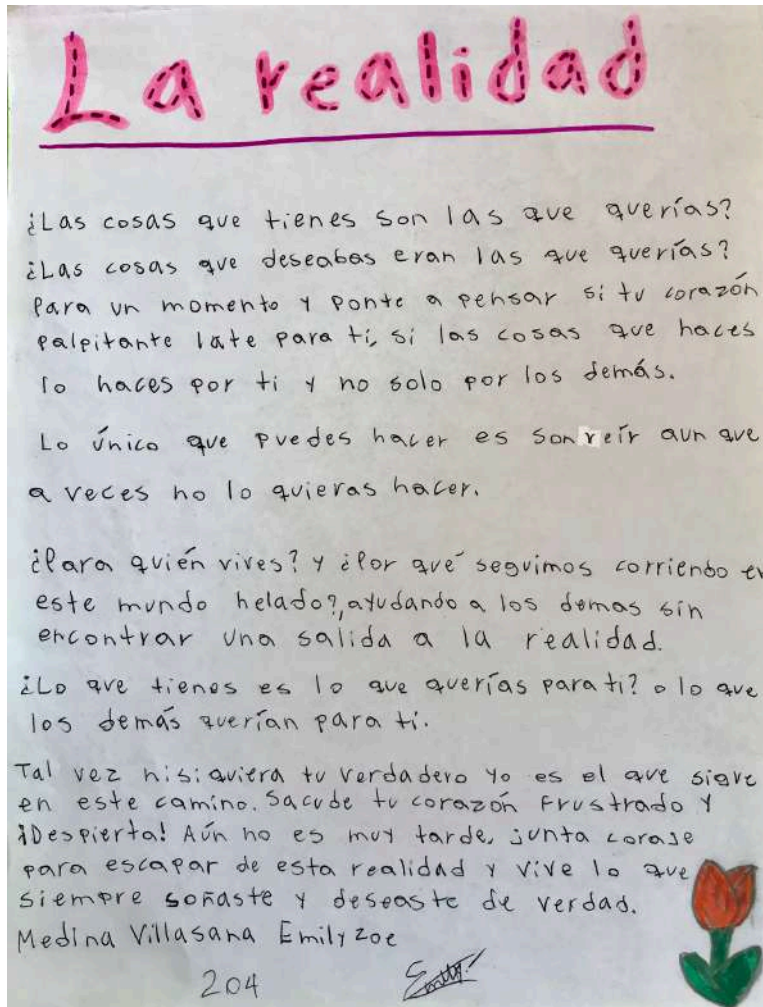 La realidad
¿Las cosas que tienes son las que querías?
¿Las cosas que deseabas eran las que querías?
Para un momento y ponte a pensar si tu corazón
palpitante late para ti, si las cosas que haces
lo haces por ti y no solo por los demás.
Lo único que puedes hacer es sonreír aun que
a veces no lo quieras hacer.
¿Para quién vives? y ¿Por qué seguimos corriendo en
este mundo helado?, ayudando a los demas sin
encontrar una salida a la realidad.
¿Lo que tienes es lo que querías para ti? o lo que
los demás querían para ti.
Tal vez nisiquiera tu verdadero yo es el que sigue
en este camino. Sacude tu corazón frustrado y
¡Despierta! Aún no es muy tarde, junta coraje
para escapar de esta realidad y vive lo que
siempre soñaste y deseaste de verdad.
Medina Villasana Emily Zoe
204